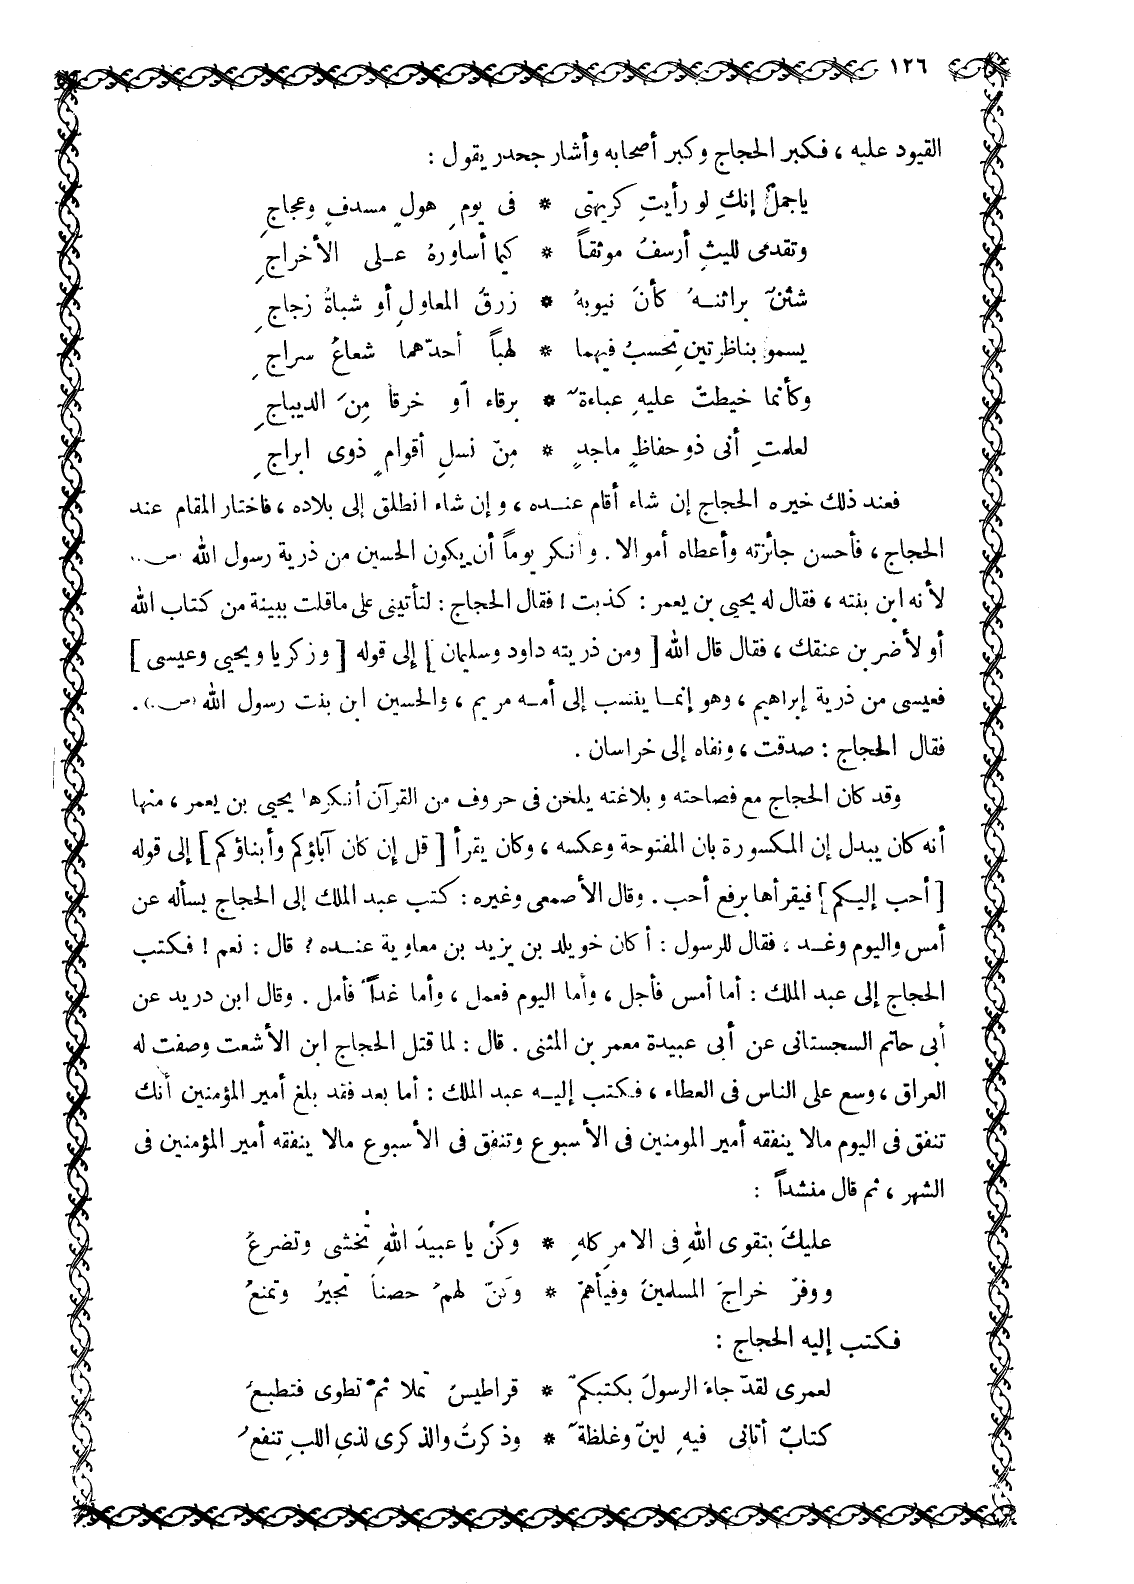 ١٢٦
القيود عليه ، فكبر الحجاج وكبر أصحابه وأشار جحدر يقول :
ياجملُ إنكِ لو رأيتِ كريهتى * فى يومِ هولٍ مسدفٍ وعجاجِ
وتقدمى لليثِ أرسفُ موثقاً * كيما أساورهُ على الأخراجِ
شثنٌ براثنهُ كأنَ نيوبهُ * زرقُ المعاولِ أو شباةُ زجاجِ
يسمو بناظرتينِ تحسبُ فيهما * لهباً أحدّهما شعاعُ سراجِ
وكأنما خيطتْ عليهِ عباءةٌ * برقاء أو خرقاً مِنَ الديباجِ
لعلمتِ أنى ذو حفاظٍ ماجدٍ * مِنْ نسلِ أقوامٍ ذوى ابراجِ
فعند ذلك خيره الحجاج إن شاء أقام عنده ، وإن شاء انطلق إلى بلاده ، فاختار المقام عند
الحجاج ، فأحسن جائزته وأعطاه أموالا . وأنكر يوماً أن يكون الحسين من ذرية رسول الله (ص)
لأنه ابن بنته ، فقال له يحيى بن يعمر : كذبت ! فقال الحجاج : لتأتينى على ماقلت ببينة من كتاب الله
أو لأضربن عنقك ، فقال قال الله [ ومن ذريته داود وسليمان ] إلى قوله [ وزكريا ويحيى وعيسى ]
فعيسى من ذرية إبراهيم ، وهو إنما ينسب إلى أمه مريم ، والحسين ابن بنت رسول الله (ص) .
فقال الحجاج : صدقت ، ونفاه إلى خراسان .
وقد كان الحجاج مع فصاحته وبلاغته يلحن فى حروف من القرآن أنكرها يحيى بن يعمر ، منها
أنه كان يبدل إن المكسورة بان المفتوحة وعكسه ، وكان يقرأ [ قل إن كان آباؤكم وأبناؤكم ] إلى قوله
[ أحب إليكم ] فيقرأها برفع أحب . وقال الأصمعى وغيره : كتب عبد الملك إلى الحجاج يسأله عن
أمس واليوم وغد ، فقال للرسول : أكان خويلد بن يزيد بن معاوية عنده ؟ قال : نعم ! فكتب
الحجاج إلى عبد الملك : أما أمس فأجل ، وأما اليوم فعمل ، وأما غداً فأمل . وقال ابن دريد عن
أبى حاتم السجستانى عن أبى عبيدة معمر بن المثنى . قال : لما قتل الحجاج ابن الأشعت وصفت له
العراق ، وسع على الناس فى العطاء ، فكتب إليه عبد الملك : أما بعد فقد بلغ أمير المؤمنين أنك
تنفق فى اليوم مالا ينفقه أمير المومنين فى الأسبوع وتنفق فى الأسبوع مالا ينفقه أمير المؤمنين فى
الشهر ، ثم قال منشداً :
عليكَ بتقوى اللهِ فى الامرِ كلهِ * وكنْ يا عبيدَ اللهِ تخشى وتضرعُ
ووفرْ خراجَ المسلمينَ وفيأهمْ * وكنْ لهمْ حصناً تجيرُ وتمنعُ
فكتب إليه الحجاج :
لعمرى لقدْ جاءَ الرسولَ بكتبكمْ * قراطيسُ تملا ثمْ تطوى فتطبعُ
كتابٌ أتانى فيهِ لينٌ وغلظةٌ * وذكرتُ والذكرى لذىِ اللبِ تنفعُ